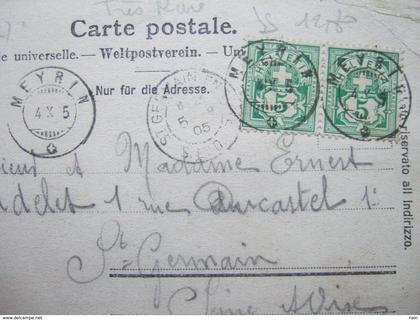 Très Rare
Carte postale.
e universelle. — Weltpostverein. — Un
Nur für die Adresse.
MEYRIN
4 X 5
ST GERMAIN
5
05
MEYRIN
HELVETIA
5
MEYRIN
HELVETIA
ato riservato all Indirizzo.
ieur et Madame Ernest
ndelet 1 rue Ducastel 1
St Germain
Seine & Oise